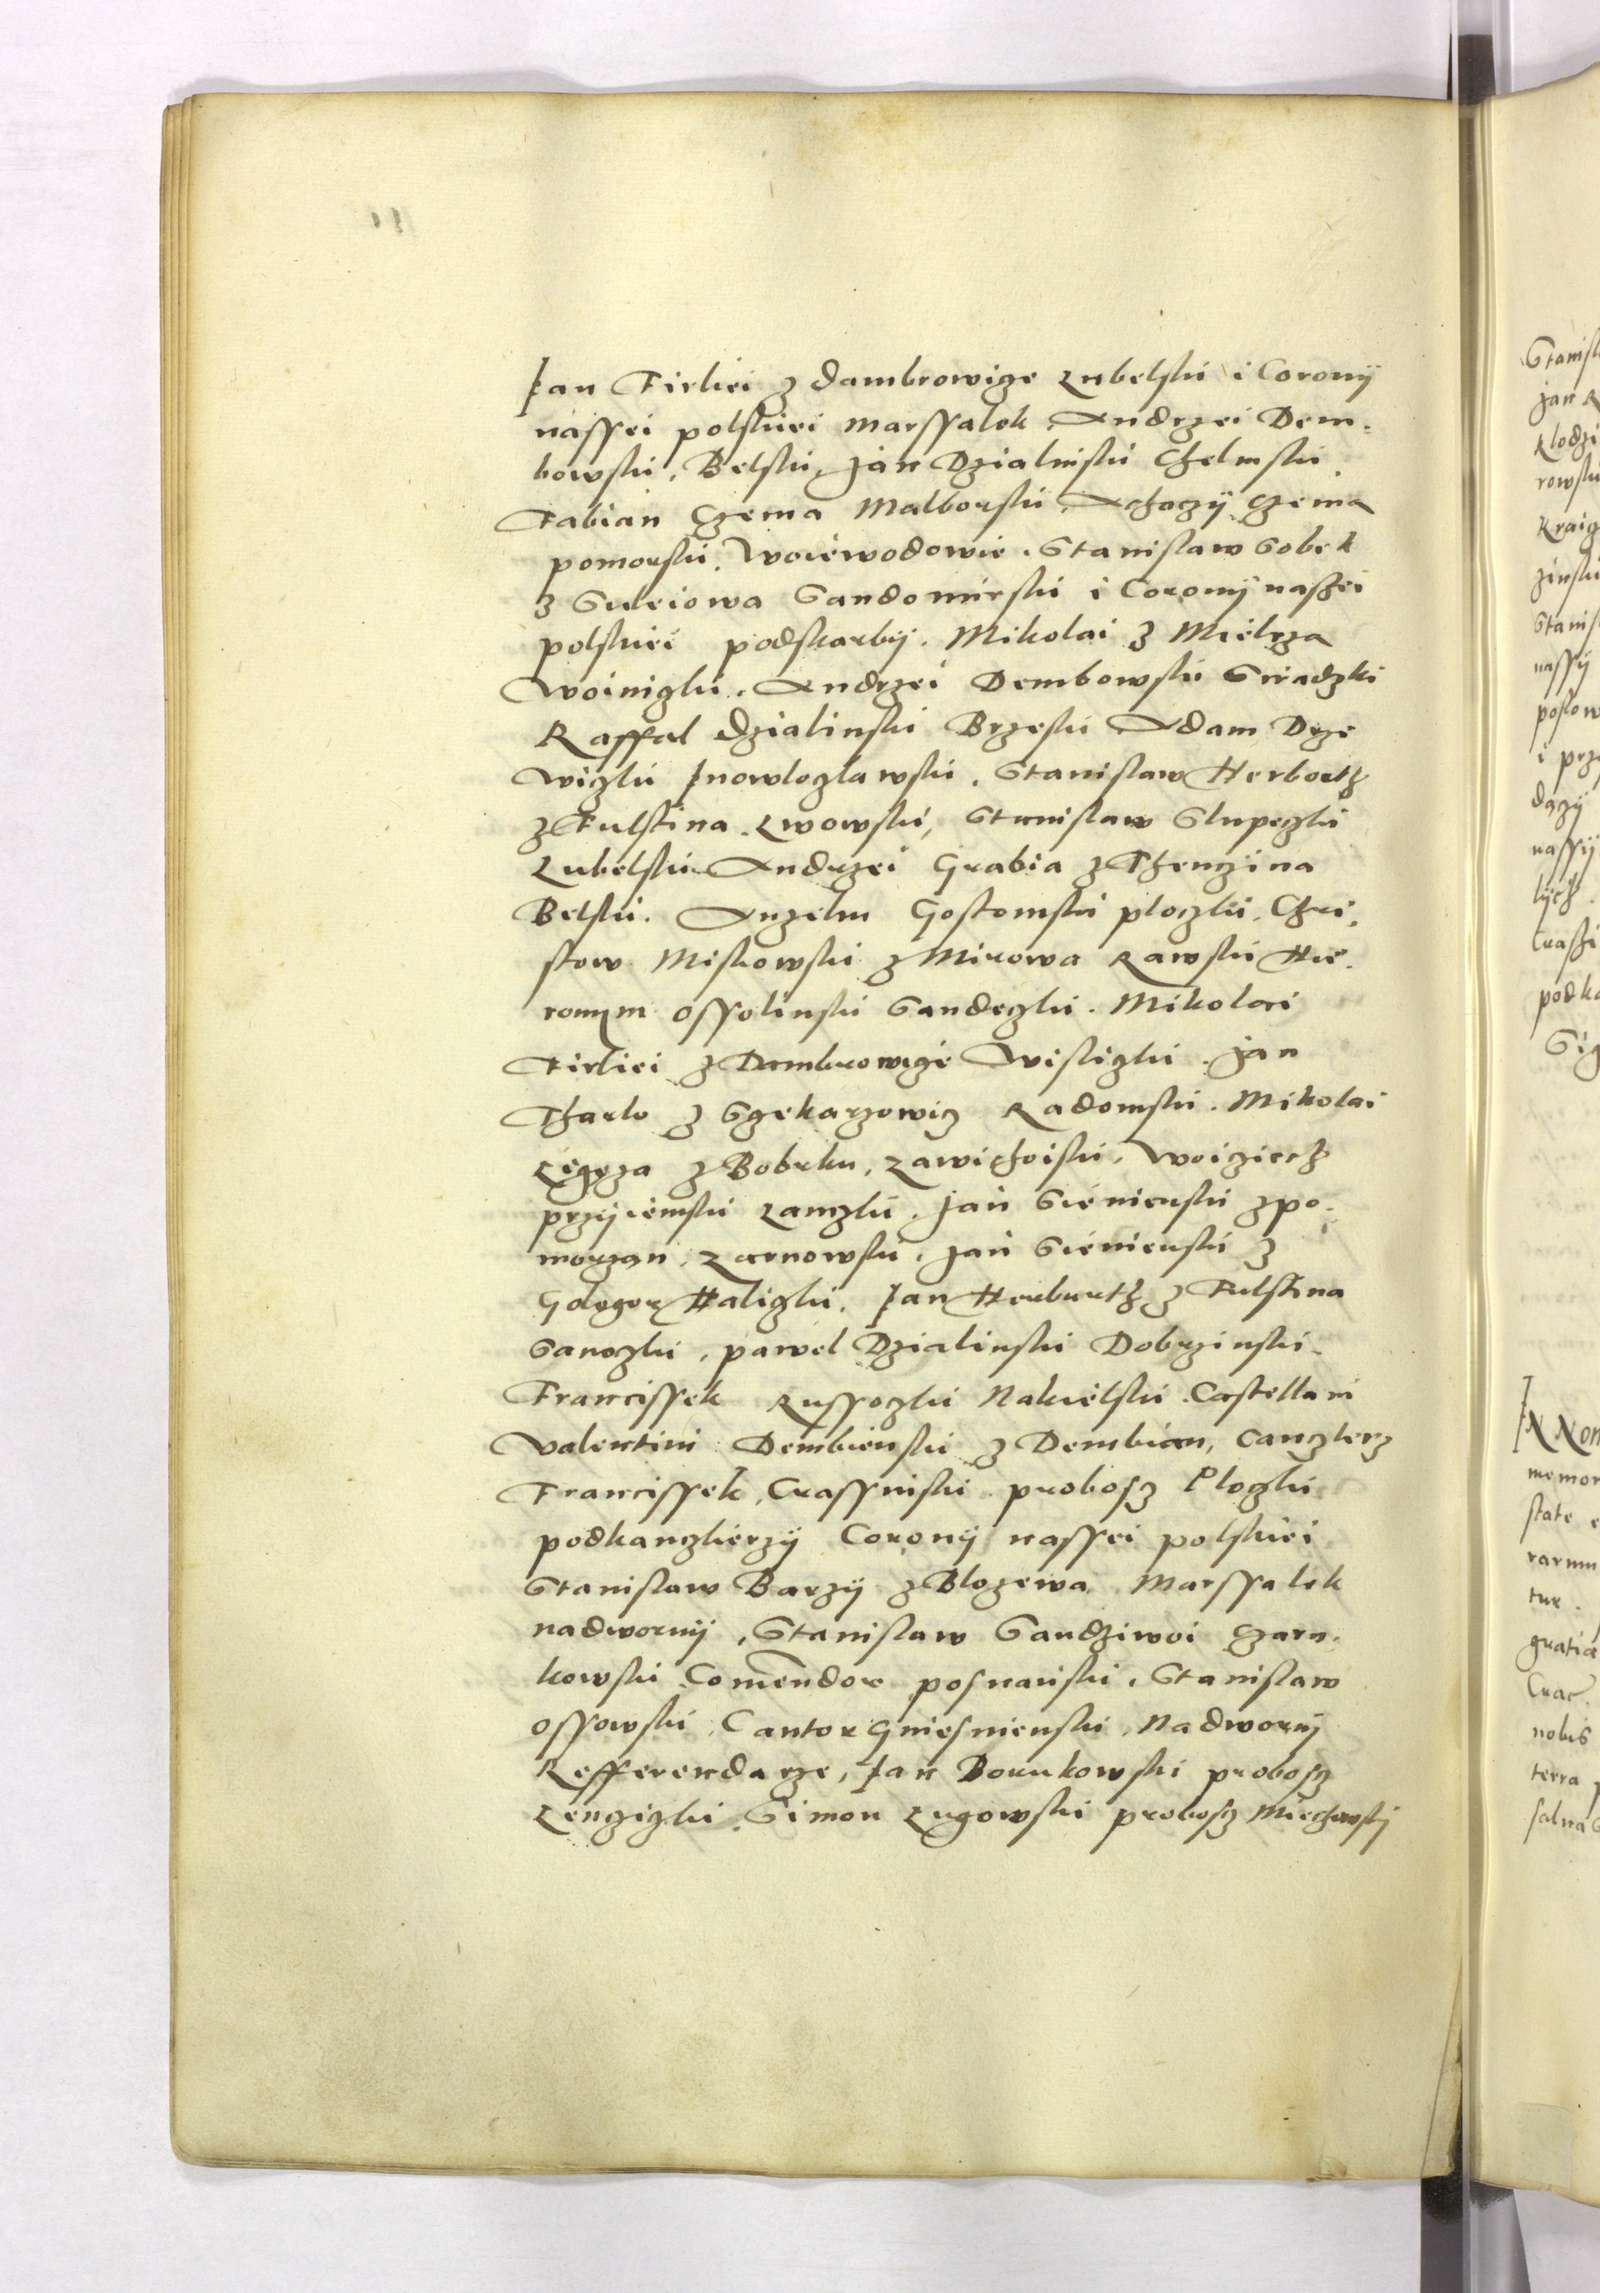 Jan Firliei z dambrowize Lubelski i Corony
nassei polskiei marssalek. Andrzei Dem-
bowski, Belski, Jan Dzialniski Chelmski
Fabian Czema Malborski, Achaczÿ Czema
pomorski, Woiewodowie. Stanislaw Sobek
z Suleiowa Sandomirski i Coronÿ naszei
polskiei podskarbÿ. Mikolai z Mielcza
Woinizki. Andrzei Dembowski Siradzki
Raffal dzialinski Brzeski Adam Drze
wizki Jnowlozlawski. Stanislaw Herbortz
z Fulstina Lwowski, Stanislaw Slupeczki
Lubelski Andrzei Grabia z Thenczina
Belski. Anzelm Gostomski ploczki. Chri-
stow Miskowski z Mirowa Rawski Hie-
ronym Ossolinski Sandeczki. Mikolai
Firliei z Dambrowize Wislizki. Jan
Tharlo z Szekarzowiz Radomski. Mikolai
Ligęza z Bobrku, Zawichoiski, Woiziech
przijiemski Lanczki. Jan Sienienski z po-
morzan, Zarnowski. Jan Sienienski z
Gologor Halizki. Jan Herburth z Fulstina
Sanoczki, pawel Dzialinski Dobrzinski.
Francissek Russoczki Nakielski. Castellani
Valentini Dembienski z Dembian, Canczlerz
Francissek, Crassniski probosz Ploczki
podkanczlierzÿ Coronÿ nassei polskiei
Stanislaw Barzÿ z Blozewa Marssalek
nadwornÿ, Stanislaw Sandziwoi Czarn-
kowski Comendor posnanski, Stanislaw
Ossowski Cantor gniesnienski, Nadwornÿ
Refferendarze, Jan Borukowski probosz
Lenczizki Simon Lugowski probosz Miechowskj
Stanisl
Jan R
Klodzi
rowski
Kraig
zinski
Stanis
nassÿ
poslow
i prze
dazÿ
nassÿ
lÿch
Crassi
podka
Sig
IN Nom
memor
state e
rarum
tur.
gratia
Crac.
nobis
terra p
salua